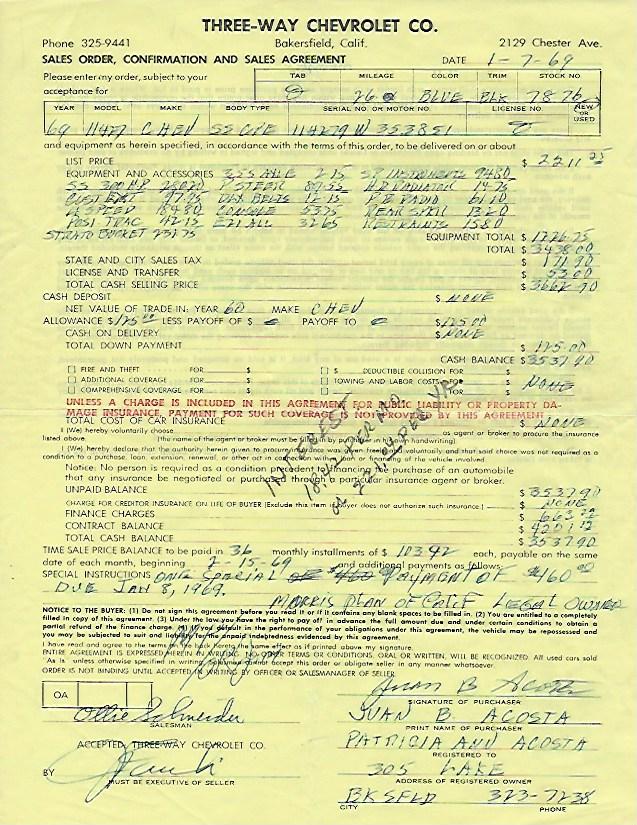 THREE-WAY CHEVROLET CO.
Phone 325-9441 Bakersfield, Calif. 2129 Chester Ave.
SALES ORDER, CONFIRMATION AND SALES AGREEMENT DATE 1-7-69
Please enter my order, subject to your acceptance for
TAB MILEAGE COLOR TRIM STOCK NO
26 BLUE BLK 7876
YEAR MODEL MAKE BODY TYPE SERIAL NO. OR MOTOR NO. LICENSE NO. NEW OR USED
69 11427 CHEV SS CPE 114279W353851
and equipment as herein specified, in accordance with the terms of this order, to be delivered on or about
LIST PRICE $ 2211 25
EQUIPMENT AND ACCESSORIES 355 AXLE 2.15 SP INSTRUMENTS 94.80
SS 300HP P STEER HD RADIATOR 14.75
DLX BELTS 12.15 P B RADIO 61.10
4 SPEED 184.80 CONSOLE 53.75 REAR SPKR 13.20
POSI TRAC 42.15 EZI ALL 32.65 RESTRAINTS 15.80
STRATO BUCKET EQUIPMENT TOTAL $ 1226.75
TOTAL $ 3438.00
STATE AND CITY SALES TAX $ 171.90
LICENSE AND TRANSFER $ 53.00
TOTAL CASH SELLING PRICE $ 3662.90
CASH DEPOSIT $ NONE
NET VALUE OF TRADE IN: YEAR 60 MAKE CHEV
ALLOWANCE $ 125 00 LESS PAYOFF OF $ PAYOFF TO $ 125 00
CASH ON DELIVERY $ NONE
TOTAL DOWN PAYMENT $ 125 00
CASH BALANCE $ 3537.90
FIRE AND THEFT FOR $ $ DEDUCTIBLE COLLISION FOR $
ADDITIONAL COVERAGE FOR $ TOWING AND LABOR COSTS FOR $ NONE
COMPREHENSIVE COVERAGE FOR $ FOR $
UNLESS A CHARGE IS INCLUDED IN THIS AGREEMENT FOR PUBLIC LIABILITY OR PROPERTY DA-
MAGE INSURANCE, PAYMENT FOR SUCH COVERAGE IS NOT PROVIDED BY THIS AGREEMENT
TOTAL COST OF CAR INSURANCE $ NONE
INTEREST
PER MO.
PER YR
I (We) hereby voluntarily choose as agent or broker to procure the insurance
listed above. (The name of agent or broker must be by purchaser in own handwriting)
I (We) hereby declare that the authority herein given to procure insurance was given freely and voluntarily and that said choice was not required as a
condition to purchase, renewal, or other act in connection with loan or financing of the vehicle involved.
Notice: No person is required as a condition precedent to financing the purchase of an automobile
that any insurance be negotiated or purchased through a particular insurance agent or broker.
UNPAID BALANCE $ 3537.90
CHARGE FOR CREDITOR INSURANCE ON LIFE OF BUYER (Exclude this item if buyer does not authorize such insurance.) $ NONE
FINANCE CHARGES $ 663.22
CONTRACT BALANCE $ 4201.12
TOTAL CASH BALANCE $ 3537.90
TIME SALE PRICE BALANCE to be paid in 36 monthly installments of $ 103.92 each, payable on the same
date of each month, beginning 2-15-69 and additional payments as follows:
SPECIAL INSTRUCTIONS ONE SPECIAL PAYMENT OF $460 00
DUE JAN 8, 1969.
MORRIS PLAN OF CALIF LEGAL OWNER
NOTICE TO THE BUYER: (1) Do not sign this agreement before you read it or if it contains any blank spaces to be filled in. (2) You are entitled to a completely
filled in copy of this agreement. (3) Under the law you have the right to pay off in advance the full amount due and under certain conditions to obtain a
partial refund of the finance charge. (4) If you default in the performance of your obligations under this agreement, the vehicle may be repossessed and
you may be subject to suit and liability for the unpaid indebtedness evidenced by this agreement.
I have read and agree to the terms on the back hereof the same effect as if printed above my signature.
ENTIRE AGREEMENT IS EXPRESSED HEREIN IN WRITING. NO OTHER TERMS OR CONDITIONS, ORAL OR WRITTEN, WILL BE RECOGNIZED. All used cars sold
"As Is" unless otherwise specified in writing. Salesman cannot accept this order or obligate seller in any manner whatsoever.
ORDER IS NOT BINDING UNTIL ACCEPTED IN WRITING BY OFFICER OR SALESMANAGER OF SELLER.
OA
Juan B Acosta
SIGNATURE OF PURCHASER
Ollie Schneider
SALESMAN
JUAN B. ACOSTA
PRINT NAME OF PURCHASER
ACCEPTED, THREE-WAY CHEVROLET CO.
PATRICIA ANN ACOSTA
REGISTERED TO
305 LAKE
BY MUST BE EXECUTIVE OF SELLER
ADDRESS OF REGISTERED OWNER
BKSFLD 323-7238
CITY PHONE